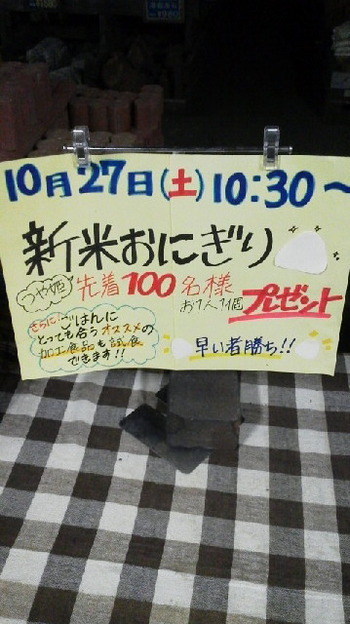 10月27日(土)10:30〜
新米おにぎり
つや姫 先着100名様
お1人1個 プレゼント
さらに!ごはんに
とっても合うオススメの
加工食品も試食
できます!!
早い者勝ち!!